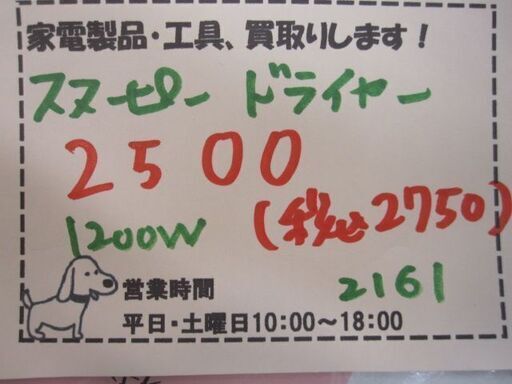 家電製品・工具、買取りします！
スヌーピー ドライヤー
2500
(税込2750)
1200W
営業時間
2161
平日・土曜日10:00～18:00